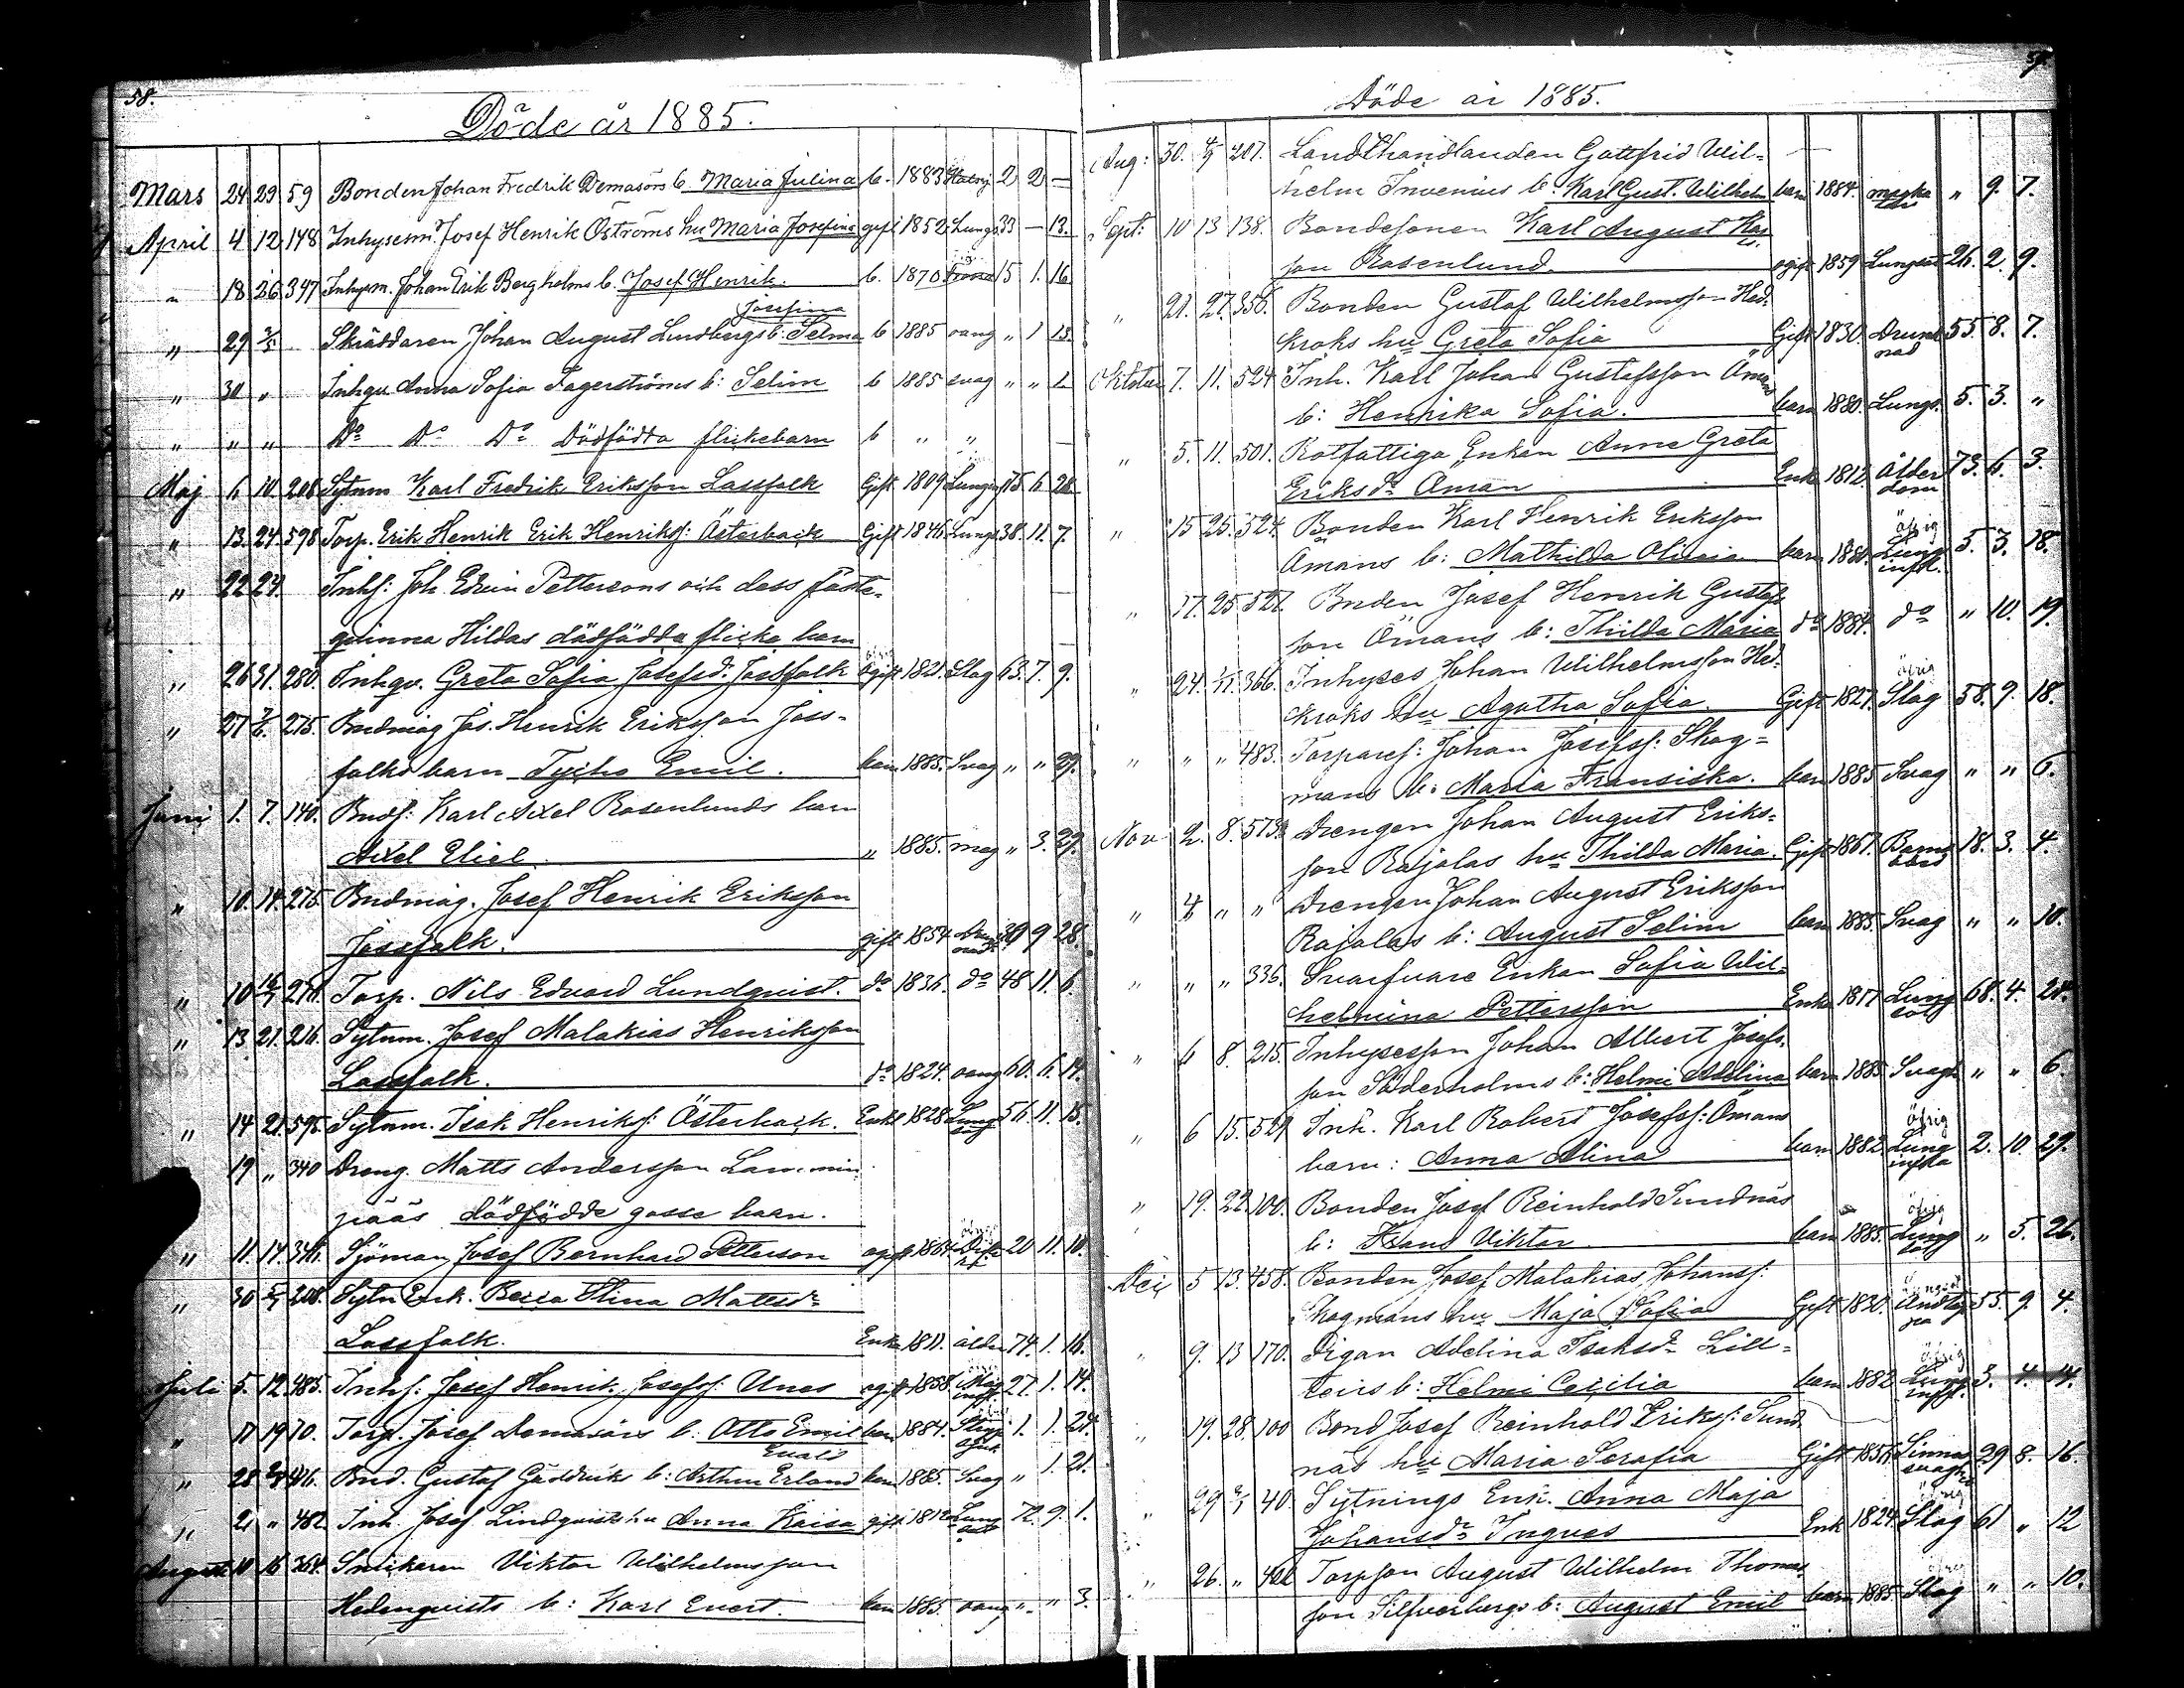 58.
Döde år 1885.
Mars 24 29 59 Bonden Johan Fredrik Demasörs b. Maria Julina b. 1883 2 2 —
April 4 12 148 Inhysesm. Josef Henrik Öströms hu Maria Josefina gift 1852 Lungs 33 — 13.
" 18 26 347 Inhysm. Johan Erik Bergholms b. Josef Henrik b. 1870 15 1. 16
Josefina
" 29 3/5 Skräddaren Johan August Lundbergs b: Selma b 1885 oang " 1 13.
" 30 " Inhqv Anna Sofia Fagerströms b: Selim b 1885 svag " " 1
" " " Do Do Do Dödfödta flickebarn b " "
Maj 6 10 208 Sytnm Karl Fredrik Eriksson Lassfolk Gift 1809 Lungs 75 6 28
" 13. 24. 598 Torp. Erik Henrik Erik Henrikss: Österback Gift 1846 Lungs 38. 11. 7.
" 22 24. Inhs: Joh. Edvin Pettersons och dess fäste-
qvinna Hildas dödfödda flicke barn
" 26 31. 280. Inhqv. Greta Sofia Josefsd. Jossfolk Ogift 1821. Slag 63. 7. 9.
" 27 7/6 275. Budmäg Jos. Henrik Eriksson Joss-
folks barn Tycho Emil. barn 1885. Svag " " 29.
Juni 1. 7. 140. Bnds: Karl Axel Rosenlunds barn
Axel Eliel " 1885. mag " 3. 29.
" 10. 14. 275. Bndmäg. Josef Henrik Eriksson
Jossfolk. gift 1854 9 28.
" 10 278. Torp. Nils Edvard Lundqvist. do 1836. do 48 11. 6.
" 13. 21. 216. Sytnm. Josef Malakias Henriksson
Lassfolk. do 1824. oang 60. 6. 14.
" 14 21. 595. Sytnm. Isak Henrikss: Österback. Enkl 1828 Lungs 56. 11. 15.
19 " 340 Dreng. Matts Andersson Lammin
pääs dödfödde gosse barn.
" 11. 14. 346. Sjöman Josef Bernhard Petterson ogift 1864 20 11. 10.
" 30 5/7 208. Sytn Enk. Beata Stina Mattsdr
Lassfolk. Enka 1811. ålder 74. 1. 16.
Juli 5. 12. 485. Inhs: Josef Henrik Josefss: Unos ogift 1858. 27. 1. 14.
" 17 19 70. Torp. Josef Demasörs b: Otto Emil barn 1884. 1. 1. 24.
Evald
" 28 476. Bnd. Gustaf Gäddnäs b: Arthur Erland barn 1885. Svag " 1. 21.
" 21 " 482 Inh. Josef Lindqvists hu Anna Kaisa gift 1812 Lungsot 72. 9. 1.
Augusti 10 16 364. Snikaren Viktor Wilhelmsson
Hedenqvists b: Karl Evert. barn 1885. oang " " 3.
59.
Döde år 1885.
Aug: 30. 4/9 207. Landthandlanden Gottfrid Wil-
helm Invenius b: Karl Gust. Wilhelm barn 1884. " 9. 7.
Sept: 10 13 138. Bondesonen Karl August Kas
son Rosenlund ogift 1859 Lungsot 26. 2. 9.
" 21. 27. 358. Bonden Gustaf Wilhelmsson Hed-
kroks hu Greta Sofia Gift 1830. Drunknad 55. 8. 7.
Oktober 7. 11. 524. Inh. Karl Johan Gustafsson Ömans
b: Henrika Sofia. barn 1880. Lungs. 5. 3. "
" 5. 11. 501. Rotfattiga Enkan Anna Greta
Eriksdr Öman Enk. 1812. Ålderdom 73. 6. 3.
" 15 25. 524. Bonden Karl Henrik Eriksson
Ömans b: Mathilda Olivia barn 1880. öfrig Lung infl. 5. 3. 18.
" 17. 25. 527. Bnden Josef Henrik Gustafs
son Ömans b: Thilda Maria do 1884. do " 10. 19.
" 24. 1/11. 366. Inhyses Johan Wilhelmsson Hed-
kroks hu Agatha Sofia Gift 1827. öfrig Slag 58. 9. 18.
" " " 483. Torpares: Johan Josefss: Skog-
mans b. Maria Fransiska. barn 1885 Svag " " 6.
Nov 2. 8. 573. Drengen Johan August Eriks-
son Rajalas hu Thilda Maria. Gift 1867. Barnsbörd 18. 3. 4.
" 4 " " Drengen Johan August Eriksson
Rajalas b: August Selim barn 1885. Svag " " 10.
" " " 336. Svarfvare Enkan Sofia Wil-
helmina Pettersson Enka 1817 Lungsot 68. 4. 21.
" 6 8. 215. Inhysesson Johan Albert Josefs-
son Söderholms b: Helmi Adelina barn 1885 Svagh " " 6.
" 6 15. 529 Inh. Karl Robert Josefss: Ömans
barn: Anna Alina barn 1882 öfrig Lung infla 2. 10. 29.
" 19. 22. 100. Bonden Josef Reinhold Sundnäs
b: Frans Viktor barn 1885. öfrig Lung sot " 5. 26.
Dec 5 13. 458. Bonden Josef Malakias Johanss:
Skogmans hu Maja Sofia Gift 1830. 55. 9. 4.
" 9. 13 170. Pigan Adelina Isaksdr Lill-
teirs b: Helmi Cecilia barn 1882 öfrig Lung infl. 3. 4. 14.
" 19. 28. 100 Bond Josef Reinhold Erikss: Sund
näs hu Maria Serafia Gift 1856. Sinnes svaghet 29 8. 16.
" 29 3/1 40. Sytnings Enk. Anna Maja
Johansdr Ingves Enk 1824. Slag 61 " 12
" 26. " Torpson August Wilhelm Thomas
son Silfverbergs b: August Emil barn 1885. Slag " " 10.